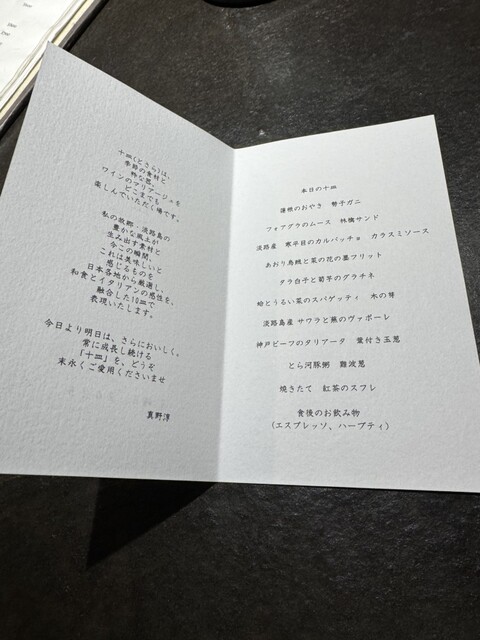 十皿(とさら)は、
季節の食材と
粋な器、
ワインのマリアージュを
どこまでも
楽しんでいただく場です。
私の故郷・淡路島の
豊かな風土が
生み出す素材と
今この瞬間、
これは美味しいと
感じるものを
日本各地から厳選し、
和食とイタリアンの感性を、
融合した10皿で
表現いたします。
今日より明日は、さらにおいしく。
常に成長し続ける
「十皿」を、どうぞ
末永くご愛用くださいませ
真野淳
本日の十皿
蓮根のおやき 勢子ガニ
フォアグラのムース 林檎サンド
淡路産 寒平目のカルパッチョ カラスミソース
あおり烏賊と菜の花の墨フリット
タラ白子と菊芋のグラチネ
蛤とうるい菜のスパゲッティ 木の芽
淡路島産 サワラと蕪のヴァポーレ
神戸ビーフのタリアータ 葉付き玉葱
とら河豚粥 難波葱
焼きたて 紅茶のスフレ
食後のお飲み物
(エスプレッソ、ハーブティ)